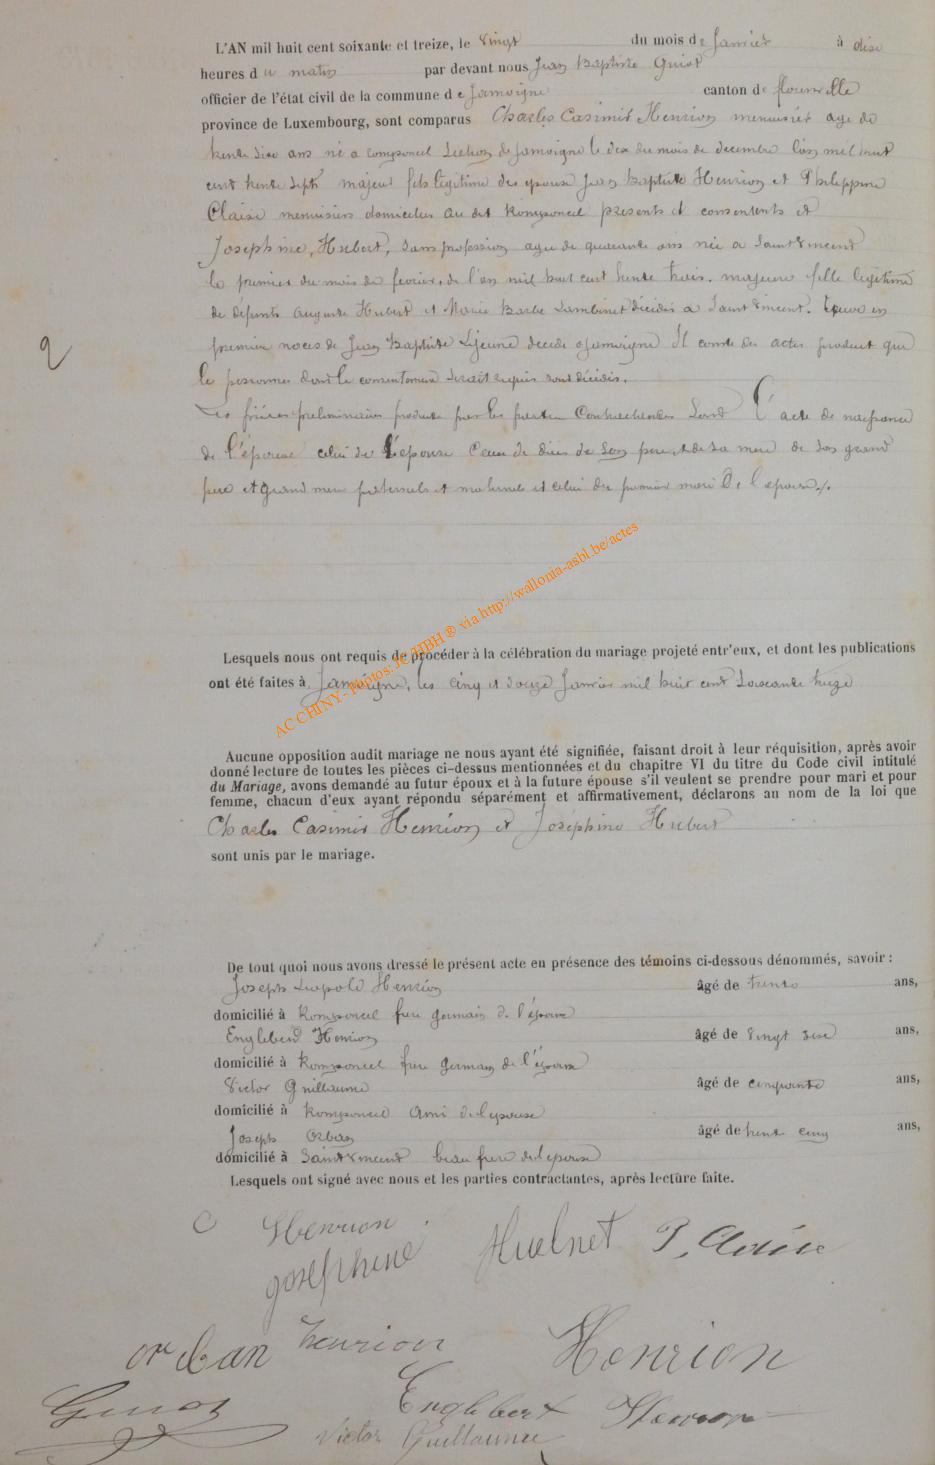 L'AN mil huit cent soixante et treize, le vingt du mois de Janvier à dix
heures du matin par devant nous Jean Baptiste Guiot
officier de l'état civil de la commune de Jamoigne canton de florenville
province de Luxembourg, sont comparus Charles Casimir Henrion menuisier age de
trente ans né a section de Jamoigne le dix du mois de decembre l'an mil huit
cent trente sept majeur fils légitime des epoux Jean Baptiste Henrion et Philippine
Claise menuisiers domiciliés au dit presents et consentents et
Josephine, Hubert, sans profession agée de quarante ans née a Saint Vincent
le premier du mois de fevrier, de l'an mil huit cent trente trois. majeure fille légitime
de défunts Auguste Hubert et Marie Barbe Lambinet décédés a Saint Vincent. veuve en
premier noces de Jean Baptiste Lejeune decede a Jamoigne Il conste des actes produit que
le personnes dont le consentement serait requis sont décédés.
Les pièces preliminaires produites par les parties Contractantes Sont l'acte de naissance
de l'épouse celui de l'epouse Ceux de décès de son pere et de sa mere de son grand
pere et grand mere paternels et maternels et celui du premier mari de l'epouse
AC CHINY - Photos: JC/HBH ® via http://wallonia-asbl.be/actes
Lesquels nous ont requis de procéder à la célébration du mariage projeté entr'eux, et dont les publications
ont été faites à Jamoigne, les cinq et douze Janvier mil huit cent soixante treize
Aucune opposition audit mariage ne nous ayant été signifiée, faisant droit à leur réquisition, après avoir
donné lecture de toutes les pièces ci-dessus mentionnées et du chapitre VI du titre du Code civil intitulé
du Mariage, avons demandé au futur époux et à la future épouse s'il veulent se prendre pour mari et pour
femme, chacun d'eux ayant répondu séparément et affirmativement, déclarons au nom de la loi que
Charles Casimir Henrion et Josephine Hubert
sont unis par le mariage.
De tout quoi nous avons dressé le présent acte en présence des témoins ci-dessous dénommés, savoir :
Joseph Leopold Henrion âgé de trente ans,
domicilié à frere germain de l'épouse
Englebert Henrion âgé de vingt ans,
domicilié à frere germain de l'épouse
Victor Guillaume âgé de cinquante ans,
domicilié à ami de l'epouse
Joseph Orban âgé de trente cinq ans,
domicilié à Saint Vincent beau frere de l'epouse
Lesquels ont signé avec nous et les parties contractantes, après lecture faite.
C Henrion
Josephine Hubert P. Claise
orban henrion Henrion
Guiot Englebert Henrion
Victor Guillaume